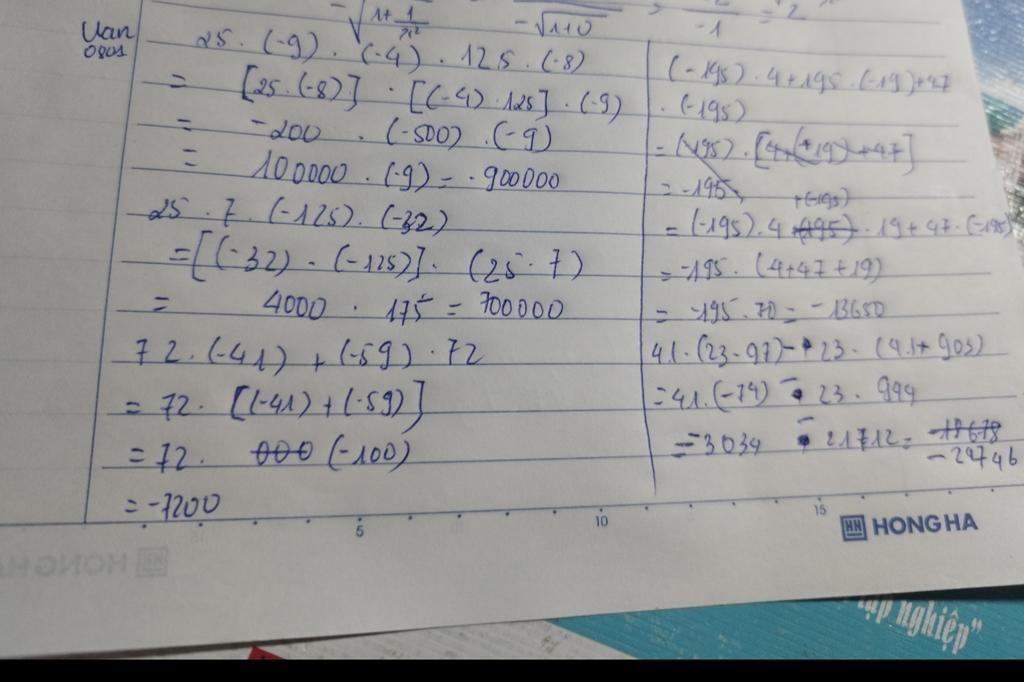 -√(1+1/x²) -√(1+0) -1 = 2
25 . (-9) . (-4) . 125 . (-8)
= [25 . (-8)] . [(-4) . 125] . (-9)
= -200 . (-500) . (-9)
= 100000 . (-9) = -900000
25 . 7 . (-125) . (-32)
= [(-32) . (-125)] . (25 . 7)
= 4000 . 175 = 700000
72 . (-41) + (-59) . 72
= 72 . [(-41) + (-59)]
= 72 . (-100)
= -7200
(-195) . 4 + 195 . (-19) + 47
. (-195)
= (195) . [4 + (+19) + 47]
= -195
+(-195)
= (-195) . 4 +(195) . 19 + 47 . (-195)
= -195 . (4+47+19)
= -195 . 70 = -13650
41 . (23 - 97) - 23 . (41 + 903)
= 41 . (-74) - 23 . 944
= -3034 - 21712 = -18678
-24746
5 10 15
HONG HA
tập nghiệp"